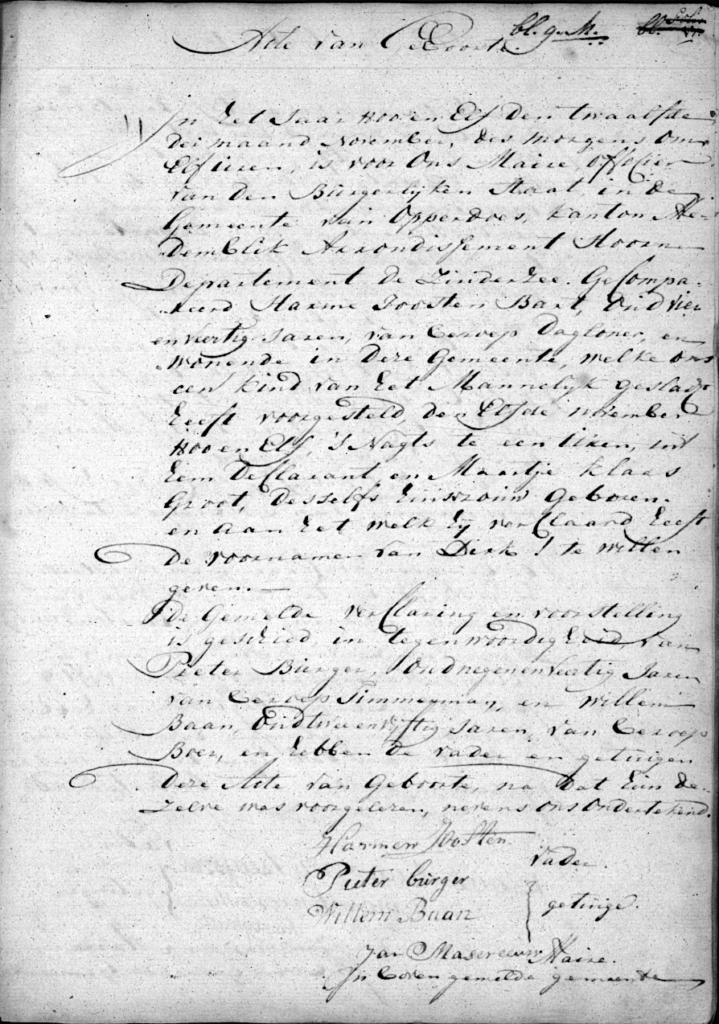 Acte van Geboorte
In het Jaar 1800 en Elf den twaalfde
der maand November, des morgens om
Elf uren, is voor Ons Maire officier
van den Burgerlyken Staat in de
Gemeente van Opperdoes, kanton Me-
demblik Arrondissement Hoorn
Departement de Zuiderzee. Gecompa-
reerd Harme Joosten Bart, oud vier
en veertig Jaren, van beroep Dagloner, en
wonende in deze Gemeente, welke ons
een kind van het Mannelyk geslagt
heeft voorgesteld den Elfde november
1800 en Elf, 's Nagts te een uren, uit
hem Declarant, en Maartje Klaas
Groot, desselfs huisvrouw geboren.
en aan het welk hy verclaard heeft
de voornamen van Dirk te willen
geven.
De Gemelde verclaring en voorstelling
is geschied in tegenwoordigheid van
Pieter Burger, oud negen en veertig Jaren
van beroep Timmerman, en Willem
Baan, oud twee en vyftig Jaren, van beroep
Boer, en hebben de vader en getuigen
Deze Acte van Geboorte, na dat hun de-
zelve was voorgelezen, nevens ons ondertekend.
Harmen Joosten vader
Pieter burger
Willem Baan getuige.
Jan Masereeuw Maire.
In boven gemelde gemeente